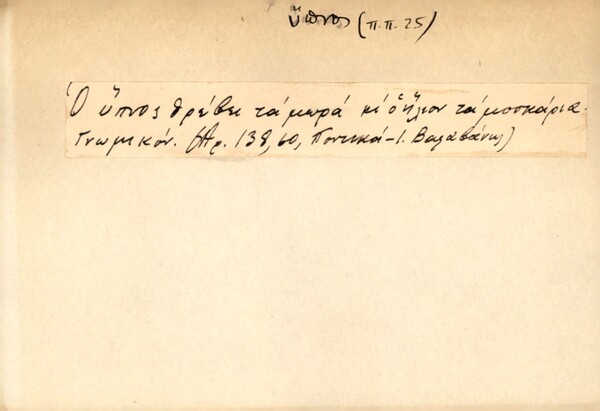 ὕπνος (Π.Π. 25)
Ὁ ὕπνος θρέβει τὰ μωρά κι ὁ ἥλεον τὰ μοσκάρια.
Γνωμικόν. (Αρ. 138, 60, Ποντικά - Ι. Βαλαβάνης)